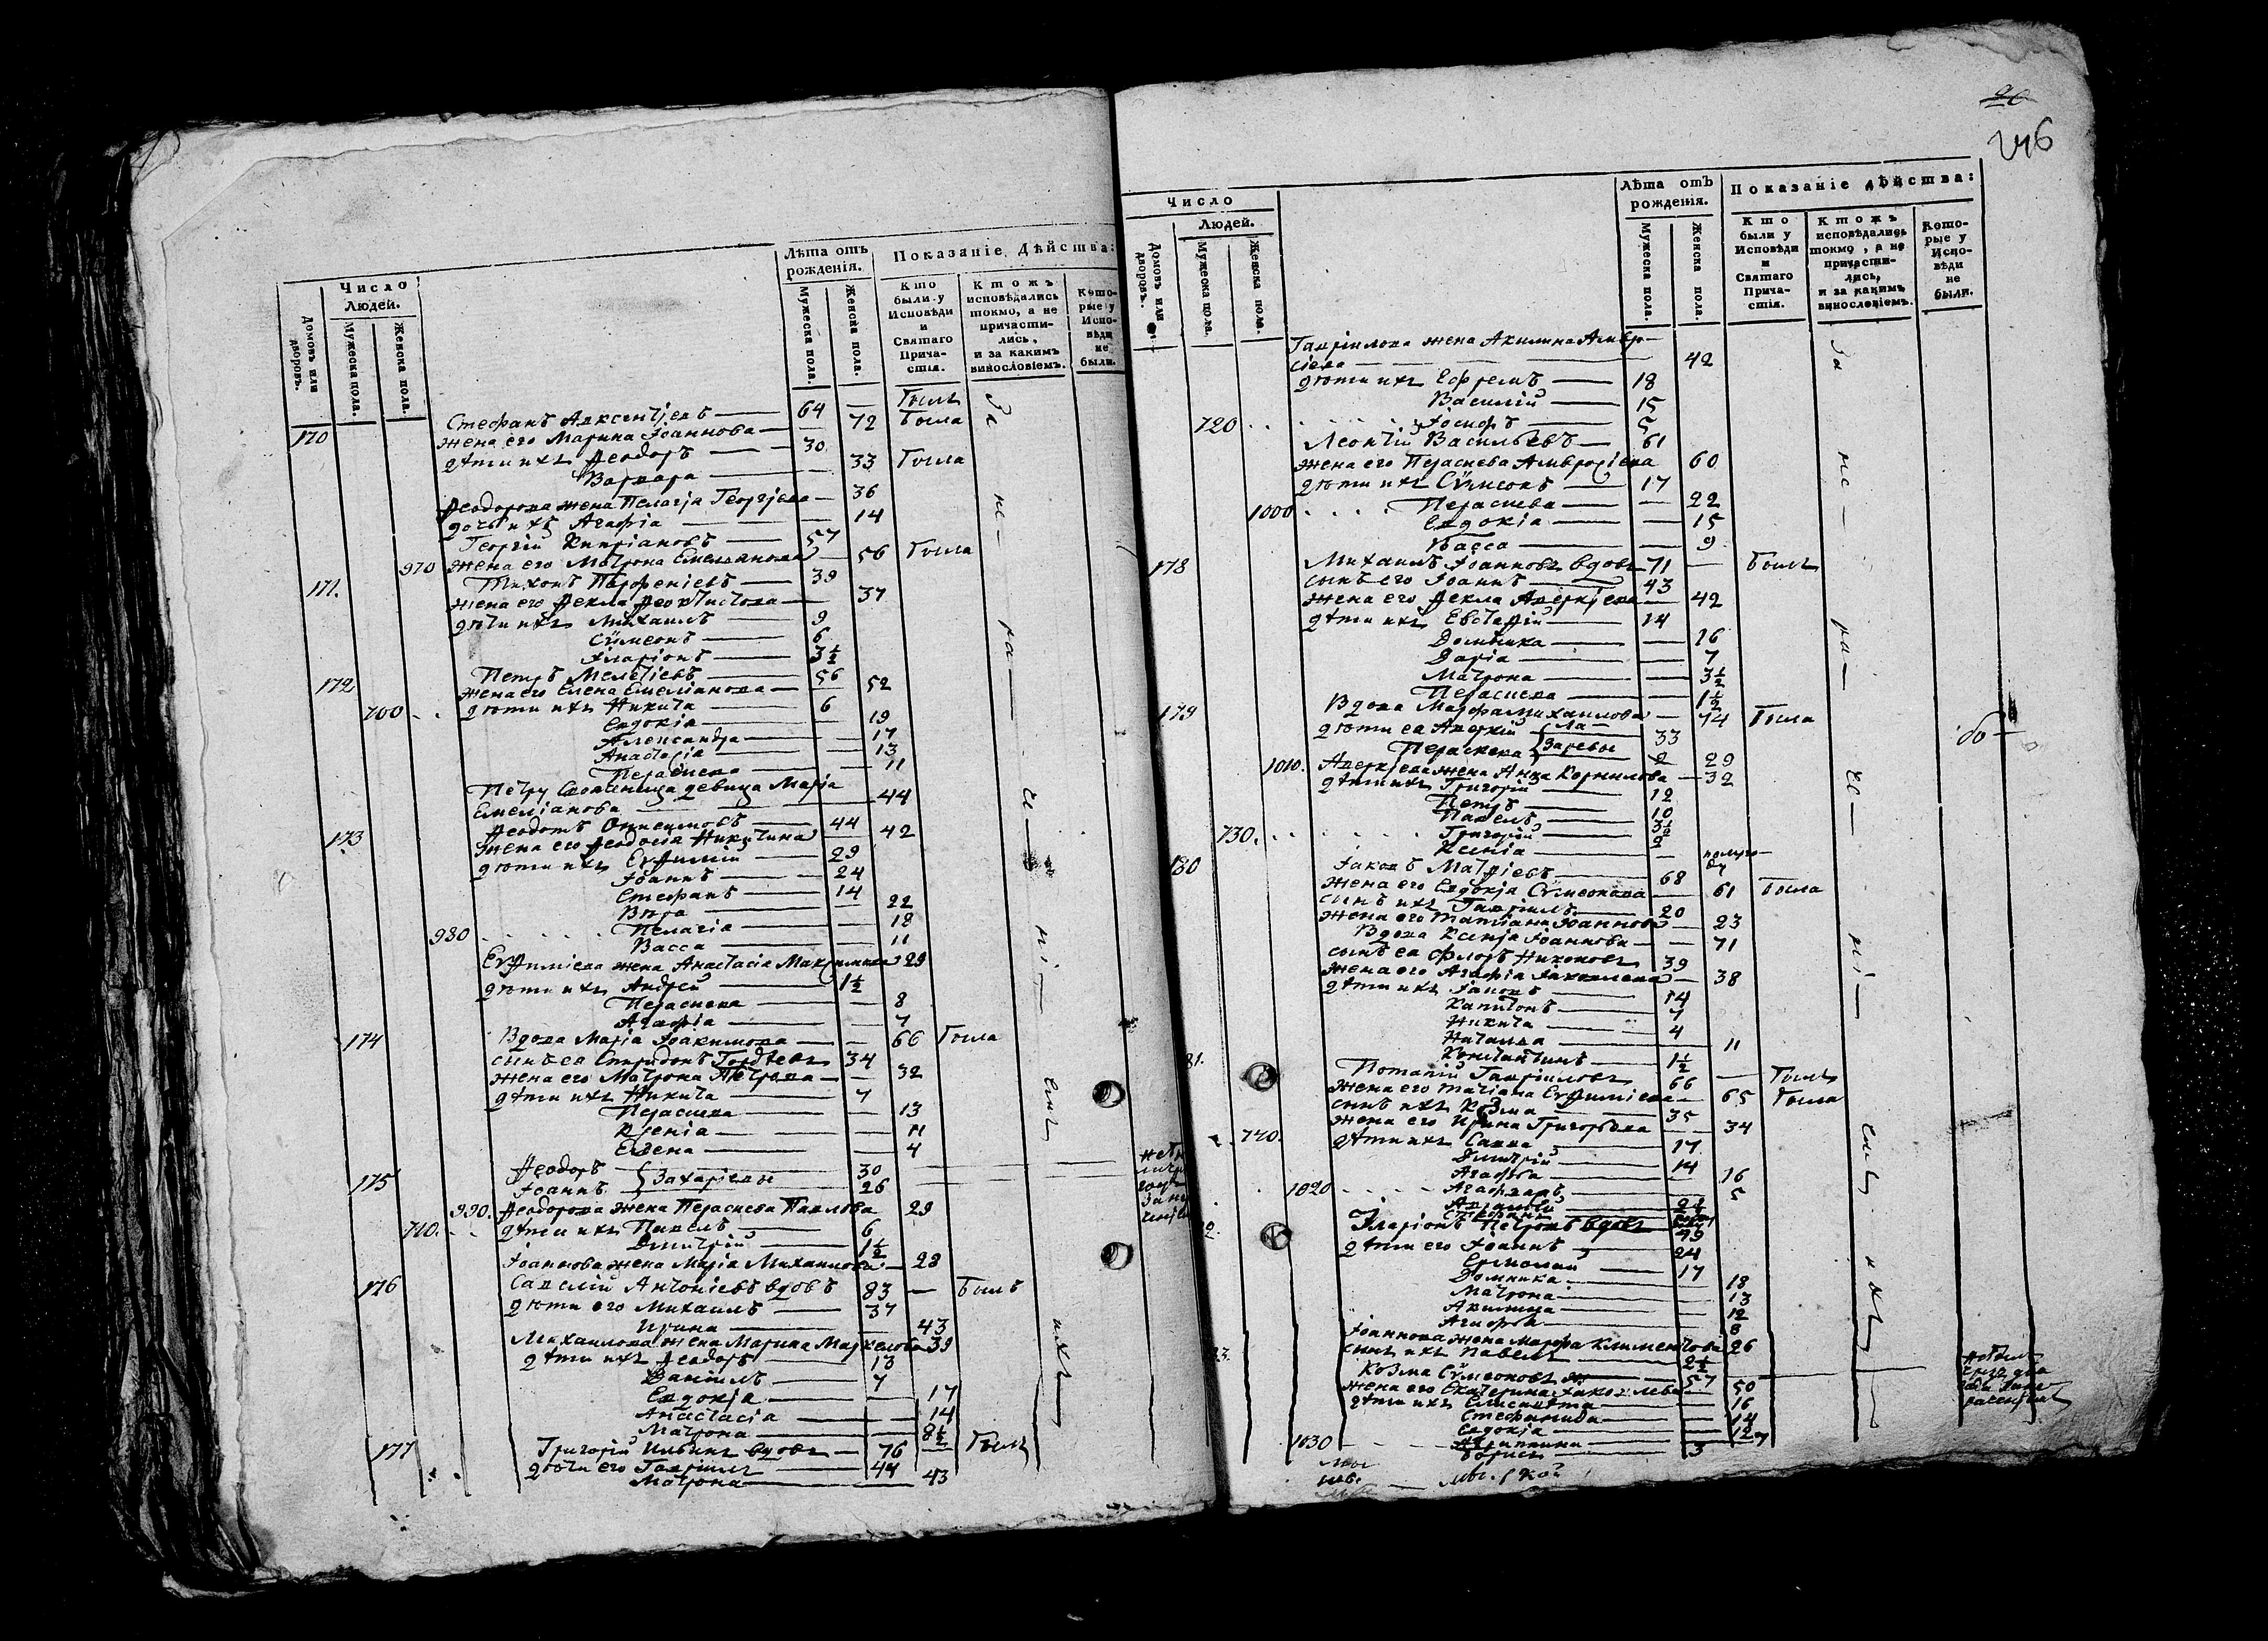 Число
Людей.
Домовъ или дворовъ.
Мужеска пола.
Женска пола.
Лѣта отъ рожденія.
Мужеска пола.
Женска пола.
Показаніе Дѣйства:
Кто были у Исповѣди и Святаго Причастія.
Ктожъ исповѣдались токмо, а не причастились, и за какимъ винословіемъ.
Которые у Исповѣди не были.
Стефанъ Авксентіевъ — 64 — былъ
170 жена его Марина Іоаннова — 72 была
дѣти ихъ Ѳеодоръ — 30
Варвара — 33 была
Ѳеодорова жена Пелагія Георгіева — 36
дочь ихъ Агафія — 14
Георгій Кипріановъ — 57
970 жена его Матрона Емельянова — 56 была
171. Тихонъ Парфеніевъ — 39
жена его Ѳекла Ѳеоктистова — 37
дѣти ихъ Михаилъ — 9
Сѵмеонъ — 6
Иларіонъ — 3½
172 Петръ Мелетіевъ — 56
жена его Елена Емеліанова — 52
700 дѣти ихъ Никита — 6
Евдокія — 19
Александра — 17
Анастасія — 13
Параскева — 11
Петру свояченица девица Марія
Емеліанова — 44
Ѳеодотъ Онисимовъ — 44
173 жена его Ѳеодосія Никитина — 42
дѣти ихъ Евѳимій — 29
Іоаннъ — 24
Стефанъ — 14
Вѣра — 22
980 Пелагія — 18
Васса — 11
Евѳиміева жена Анастасія Максимова 29
дѣти ихъ Андрей — 1½
Параскева — 8
Агафія — 7
174 Вдова Марія Іоакимова — 66 была
сынъ ея Спиридонъ Гордѣевъ 34
жена его Матрона Петрова — 32
дѣти ихъ Никита — 7
Параскева — 13
Ксенія — 11
Елена — 4
175 Ѳеодоръ 30
Іоаннъ } Захаріевы 26
990. Ѳеодорова жена Параскева Павлова 29
710. дѣти ихъ Павелъ — 6
Димитрій — 1½
Іоаннова жена Марія Михаилова — 28
176 Савелій Антоніевъ вдовъ 83 — былъ
дѣти его Михаилъ — 37
Ирина — 43
Михаилова жена Марина Маркелова 39
дѣти ихъ Ѳеодоръ — 13
Даніилъ — 7
Евдокія — 17
Анастасія — 14
Матрона — 8½
177 Григорій Ильинъ вдовъ — 76 — былъ
дѣти его Гавріилъ — 44
Матрона — 43
За не-ра-че-ні-емъ ихъ
246
Число
Людей.
Домовъ или дворовъ.
Мужеска пола.
Женска пола.
Лѣта отъ рожденія.
Мужеска пола.
Женска пола.
Показаніе дѣйства:
Кто были у Исповѣди и Святаго Причастія.
Ктожъ исповѣдались токмо, а не причастились, и за какимъ винословіемъ.
Которые у Исповѣди не были.
Гавріилова жена Акилина Амвро-
сіева — 42
дѣти ихъ Ефремъ — 18
Василій — 15
720 Іосифъ — 5
Леонтій Васильевъ — 61
жена его Параскева Амвросіева 60
дѣти ихъ Сѵмеонъ — 17
1000 Параскева — 22
Евдокія — 15
Васса — 9
178 Михаилъ Іоанновъ вдовъ 71 — былъ
сынъ его Іоаннъ — 43
жена его Ѳекла Аверкіева — 42
дѣти ихъ Евстафій — 14
Домника — 16
Дарія — 7
Матрона — 3½
Параскева — 1½
179 Вдова Марфа Михаилова — 74 была
дѣти ея Аверкій 33
Параскева 29
1010. Аверкіева жена Анна Корнилова — 32
дѣти ихъ Григорій — 12
Петръ — 10
Павелъ — 3½
730. Григорій — 2
Ксенія — полуго-
ду
180 Іаковъ Матѳіевъ — 68
жена его Евдокія Сѵмеонова — 61 была
сынъ ихъ Гавріилъ — 20
жена его Татіана Іоаннова — 23
Вдова Ксенія Іоаннова — 71
сынъ ея Флоръ Никоновъ 39
жена его Агафія Іаковлева — 38
дѣти ихъ Іаковъ — 14
Капитонъ — 7
Никита — 4
Наталья — 11
Константинъ — 1½
81. Потапій Гавріиловъ 66 — былъ
жена его Татіана Евѳиміева — 65 была
сынъ ихъ Козма — 35
жена его Ирина Григорьева — 34
740. дѣти ихъ Савва — 17
Димитрій — 14
Агафья — 16
1020 5
Стефанъ
Иларіонъ Петровъ вдовъ 49
дѣти его Іоаннъ — 24
Ермолай — 17
Домника — 18
Матрона — 13
Акилина — 12
Агафья — 8
Іоаннова жена Марфа Климентова 26
сынъ ихъ Павелъ — 2½
Козма Сѵмеоновъ — 57
жена его Екатерина Іаковлева — 50
дѣти ихъ Елисавета — 16
Стефанида — 14
Евдокія — 12
1030 7
Борисъ — 3
За не-ра-че-ні-емъ ихъ